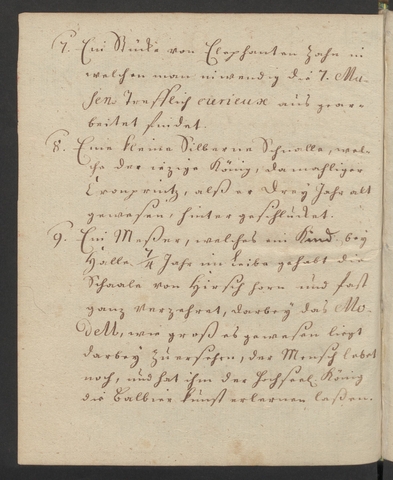 7. Ein Stücke von Elephanten Zahn in
welchen man inwendig die 7. Mu-
sen Trefflich curieux aus gear-
beitet findet.
8. Eine kleine Silberne Schnalle, wel-
che der iezige König, damahliger
Cronprintz, alß er Drey Jahr alt
gewesen, hinter geschlucket.
9. Ein Meßer, welches ein Kind bey
Halle 7/4 Jahr im Leibe gehabt die
Schaale von Hirsch horn und fast
ganz verzehret, darbey das Mo-
dell, wie groß es gewesen liegt
darbey zu ersehen, der Mensch lebet
noch, und hat ihm der Hochseel. König
die Balbier Kunst erlernen laßen.